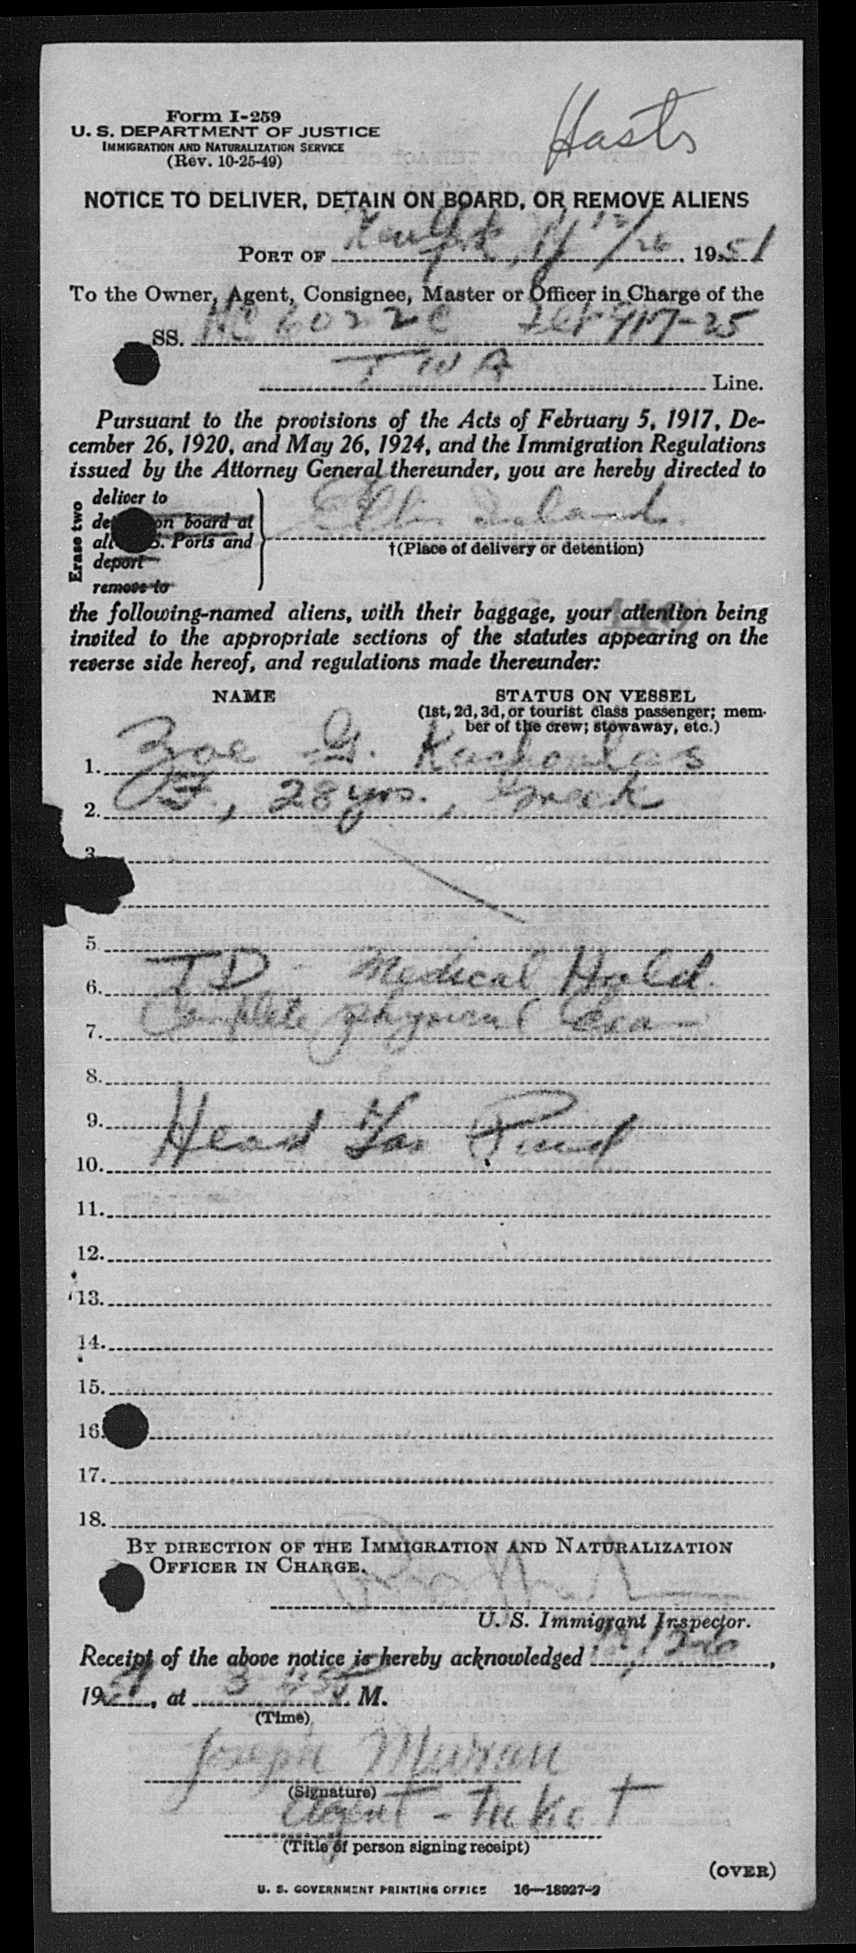 Form I-259
U. S. DEPARTMENT OF JUSTICE
IMMIGRATION AND NATURALIZATION SERVICE
(Rev. 10-25-49)
NOTICE TO DELIVER, DETAIN ON BOARD, OR REMOVE ALIENS
PORT OF New York, 12/26, 1951
To the Owner, Agent, Consignee, Master or Officer in Charge of the
SS. NC 6022C 917-25
TWA Line.
Pursuant to the provisions of the Acts of February 5, 1917, De-
cember 26, 1920, and May 26, 1924, and the Immigration Regulations
issued by the Attorney General thereunder, you are hereby directed to
Erase two
deliver to
on board at
Ports and
deport
remove to
Ellis Island
†(Place of delivery or detention)
the following-named aliens, with their baggage, your attention being
invited to the appropriate sections of the statutes appearing on the
reverse side hereof, and regulations made thereunder:
NAME STATUS ON VESSEL
(1st, 2d, 3d, or tourist class passenger; mem-
ber of the crew; stowaway, etc.)
1. Zoe G. Kachoulas
2. F., 28 yrs., Greek
3.
5.
6. TD - Medical Hold.
7. Complete physical
8.
9. Head Tax Paid
10.
11.
12.
13.
14.
15.
16.
17.
18.
BY DIRECTION OF THE IMMIGRATION AND NATURALIZATION
OFFICER IN CHARGE.
U. S. Immigrant Inspector.
Receipt of the above notice is hereby acknowledged 12/26,
1951, at 3 45 P. M.
(Time)
Joseph
(Signature)
Agent - Ticket
(Title of person signing receipt)
(OVER)
U. S. GOVERNMENT PRINTING OFFICE 16—18927-2